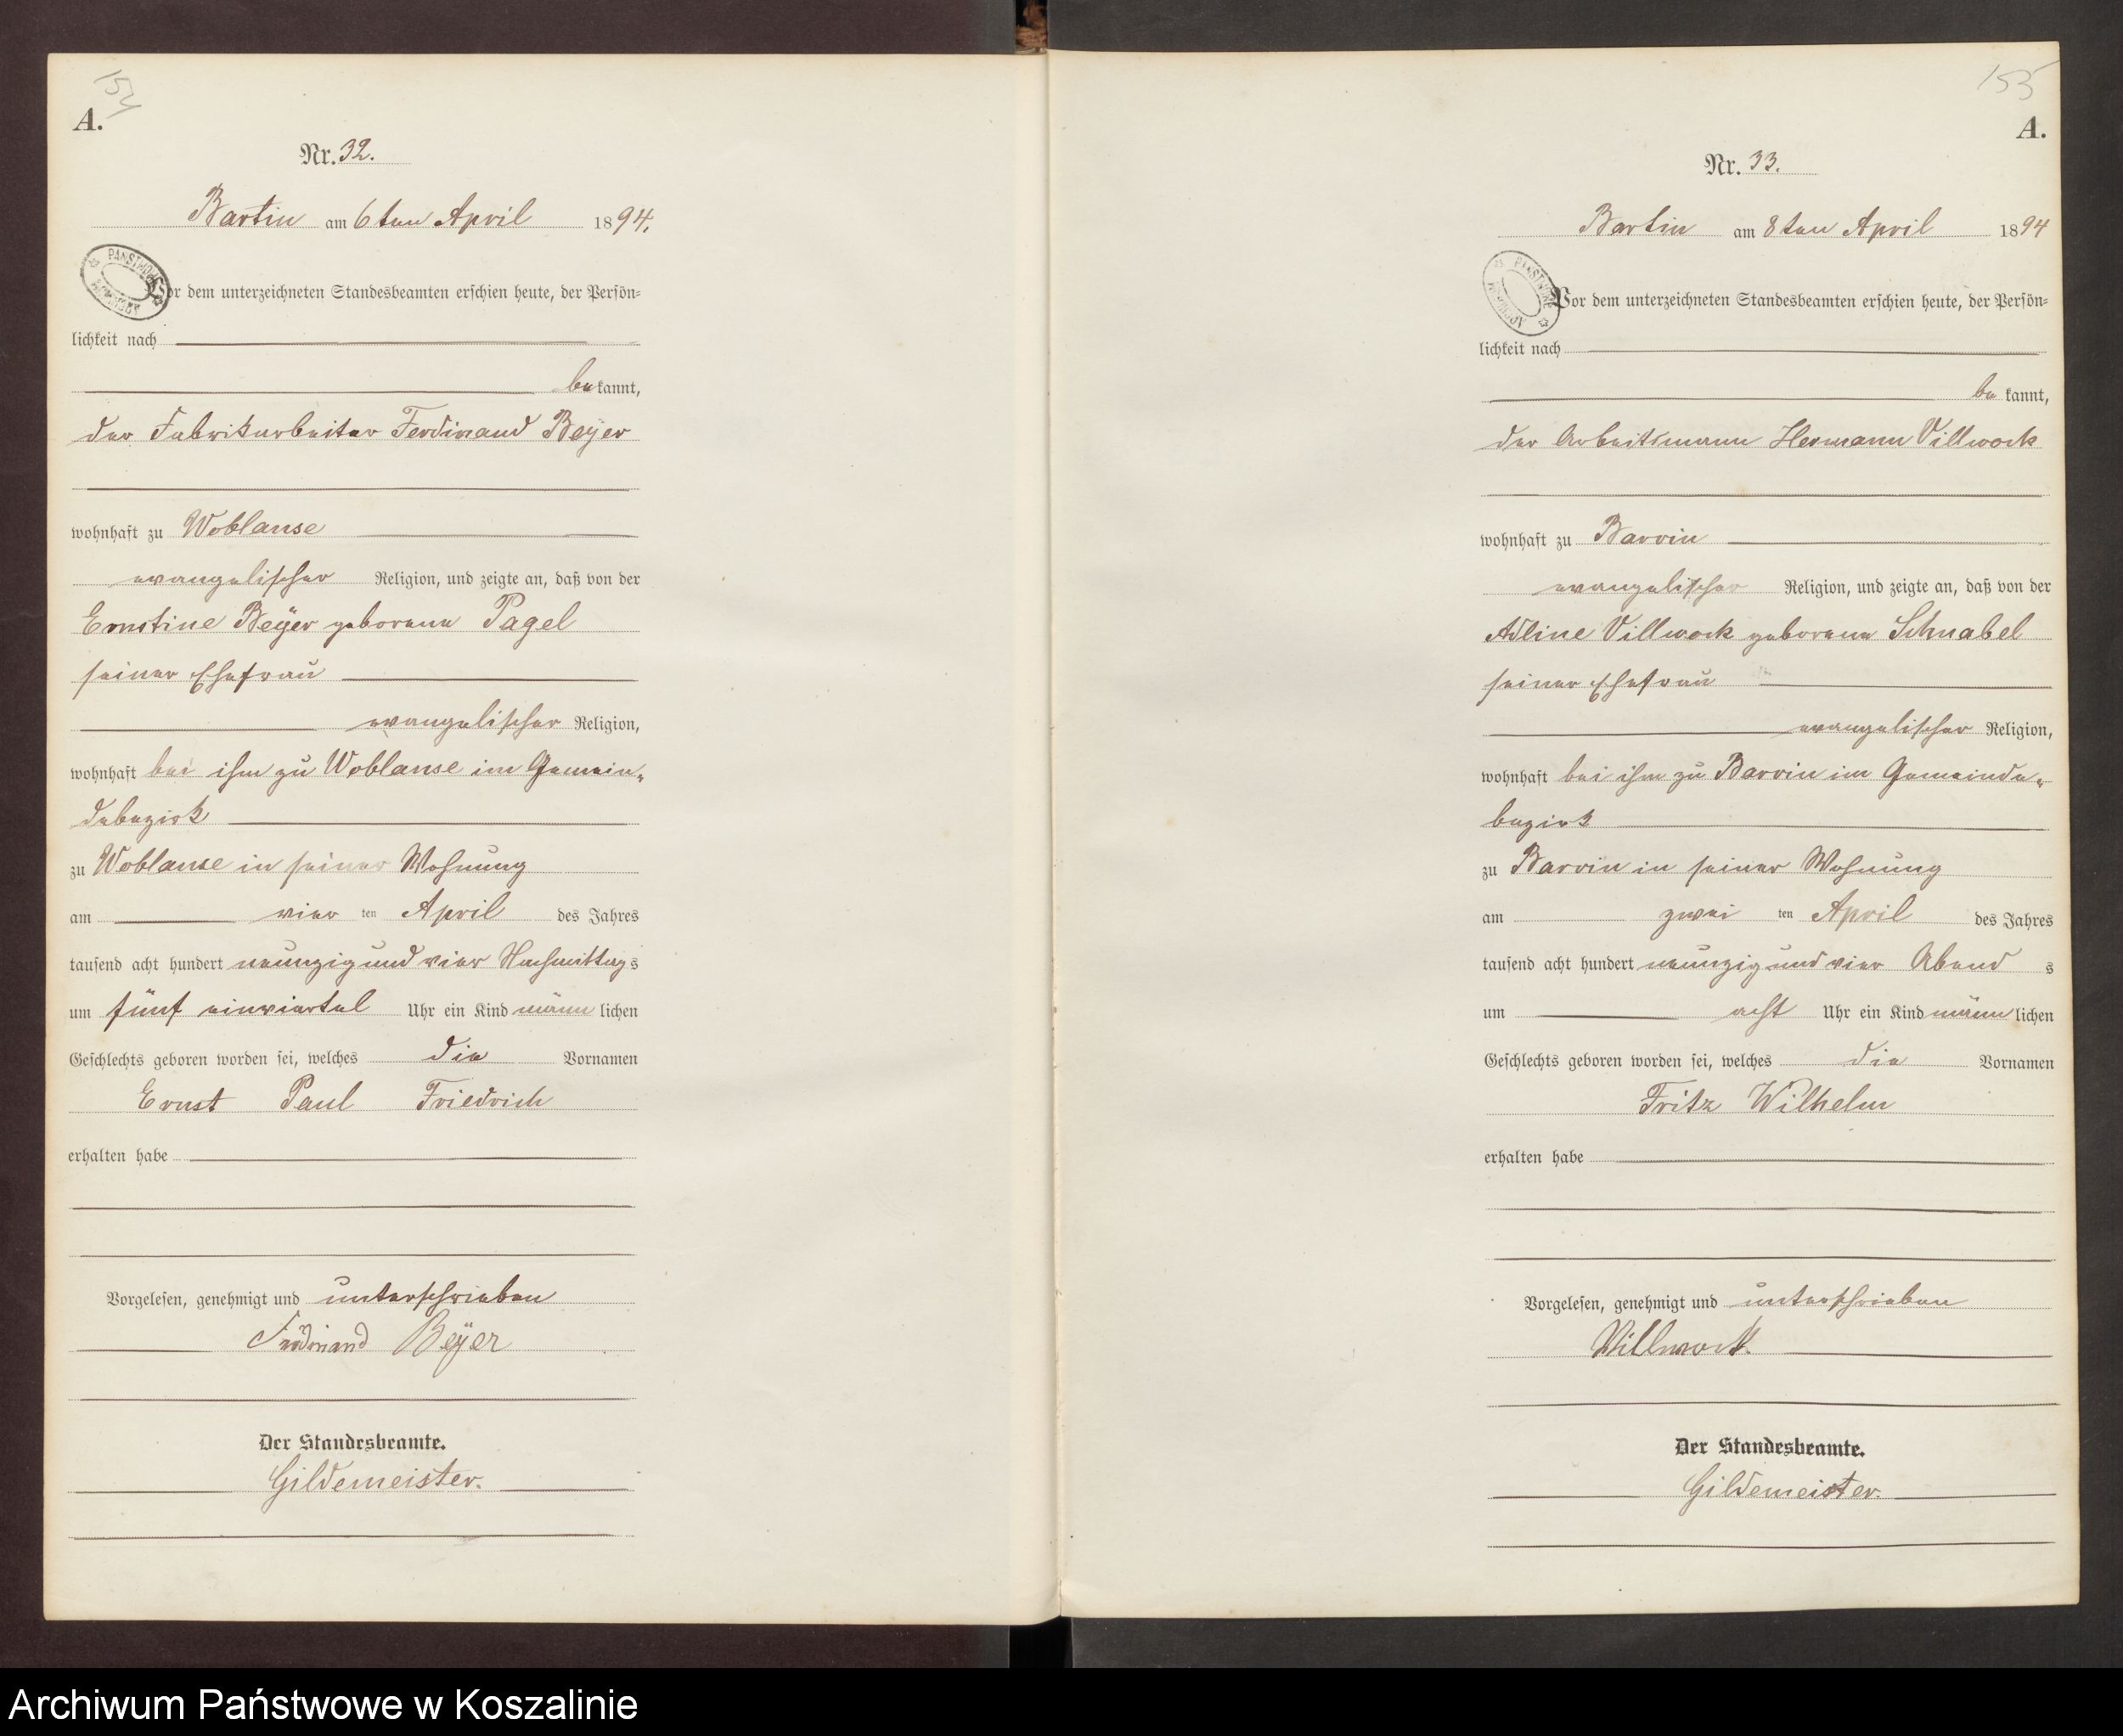 154
A.
Nr. 32.
Bartin am 6ten April 1894.
Vor dem unterzeichneten Standesbeamten erschien heute, der Persön=
lichkeit nach
bekannt,
der Fabrikarbeiter Ferdinand Beÿer
wohnhaft zu Woblanse
evangelischer Religion, und zeigte an, daß von der
Ernstine Beÿer geborene Pagel
seiner Ehefrau
evangelischer Religion,
wohnhaft bei ihm zu Woblanse im Gemein=
debezirk
zu Woblanse in seiner Wohnung
am vier ten April des Jahres
tausend acht hundert neunzig und vier Nachmittags
um fünf einviertel Uhr ein Kind männlichen
Geschlechts geboren worden sei, welches die Vornamen
Ernst Paul Friedrich
erhalten habe
Vorgelesen, genehmigt und unterschrieben
Ferdinand Beÿer
Der Standesbeamte.
Gildemeister.
155
A.
Nr. 33.
Bartin am 8ten April 1894
Vor dem unterzeichneten Standesbeamten erschien heute, der Persön=
lichkeit nach
bekannt,
der Arbeitsmann Hermann Villwock
wohnhaft zu Barvin
evangelischer Religion, und zeigte an, daß von der
Adline Villwock geborene Schnabel
seiner Ehefrau
evangelischer Religion,
wohnhaft bei ihm zu Barvin im Gemeinde=
bezirk
zu Barvin in seiner Wohnung
am zwei ten April des Jahres
tausend acht hundert neunzig und vier Abend s
um acht Uhr ein Kind männlichen
Geschlechts geboren worden sei, welches die Vornamen
Fritz Wilhelm
erhalten habe
Vorgelesen, genehmigt und unterschrieben
Villwock
Der Standesbeamte.
Gildemeister.
Archiwum Państwowe w Koszalinie